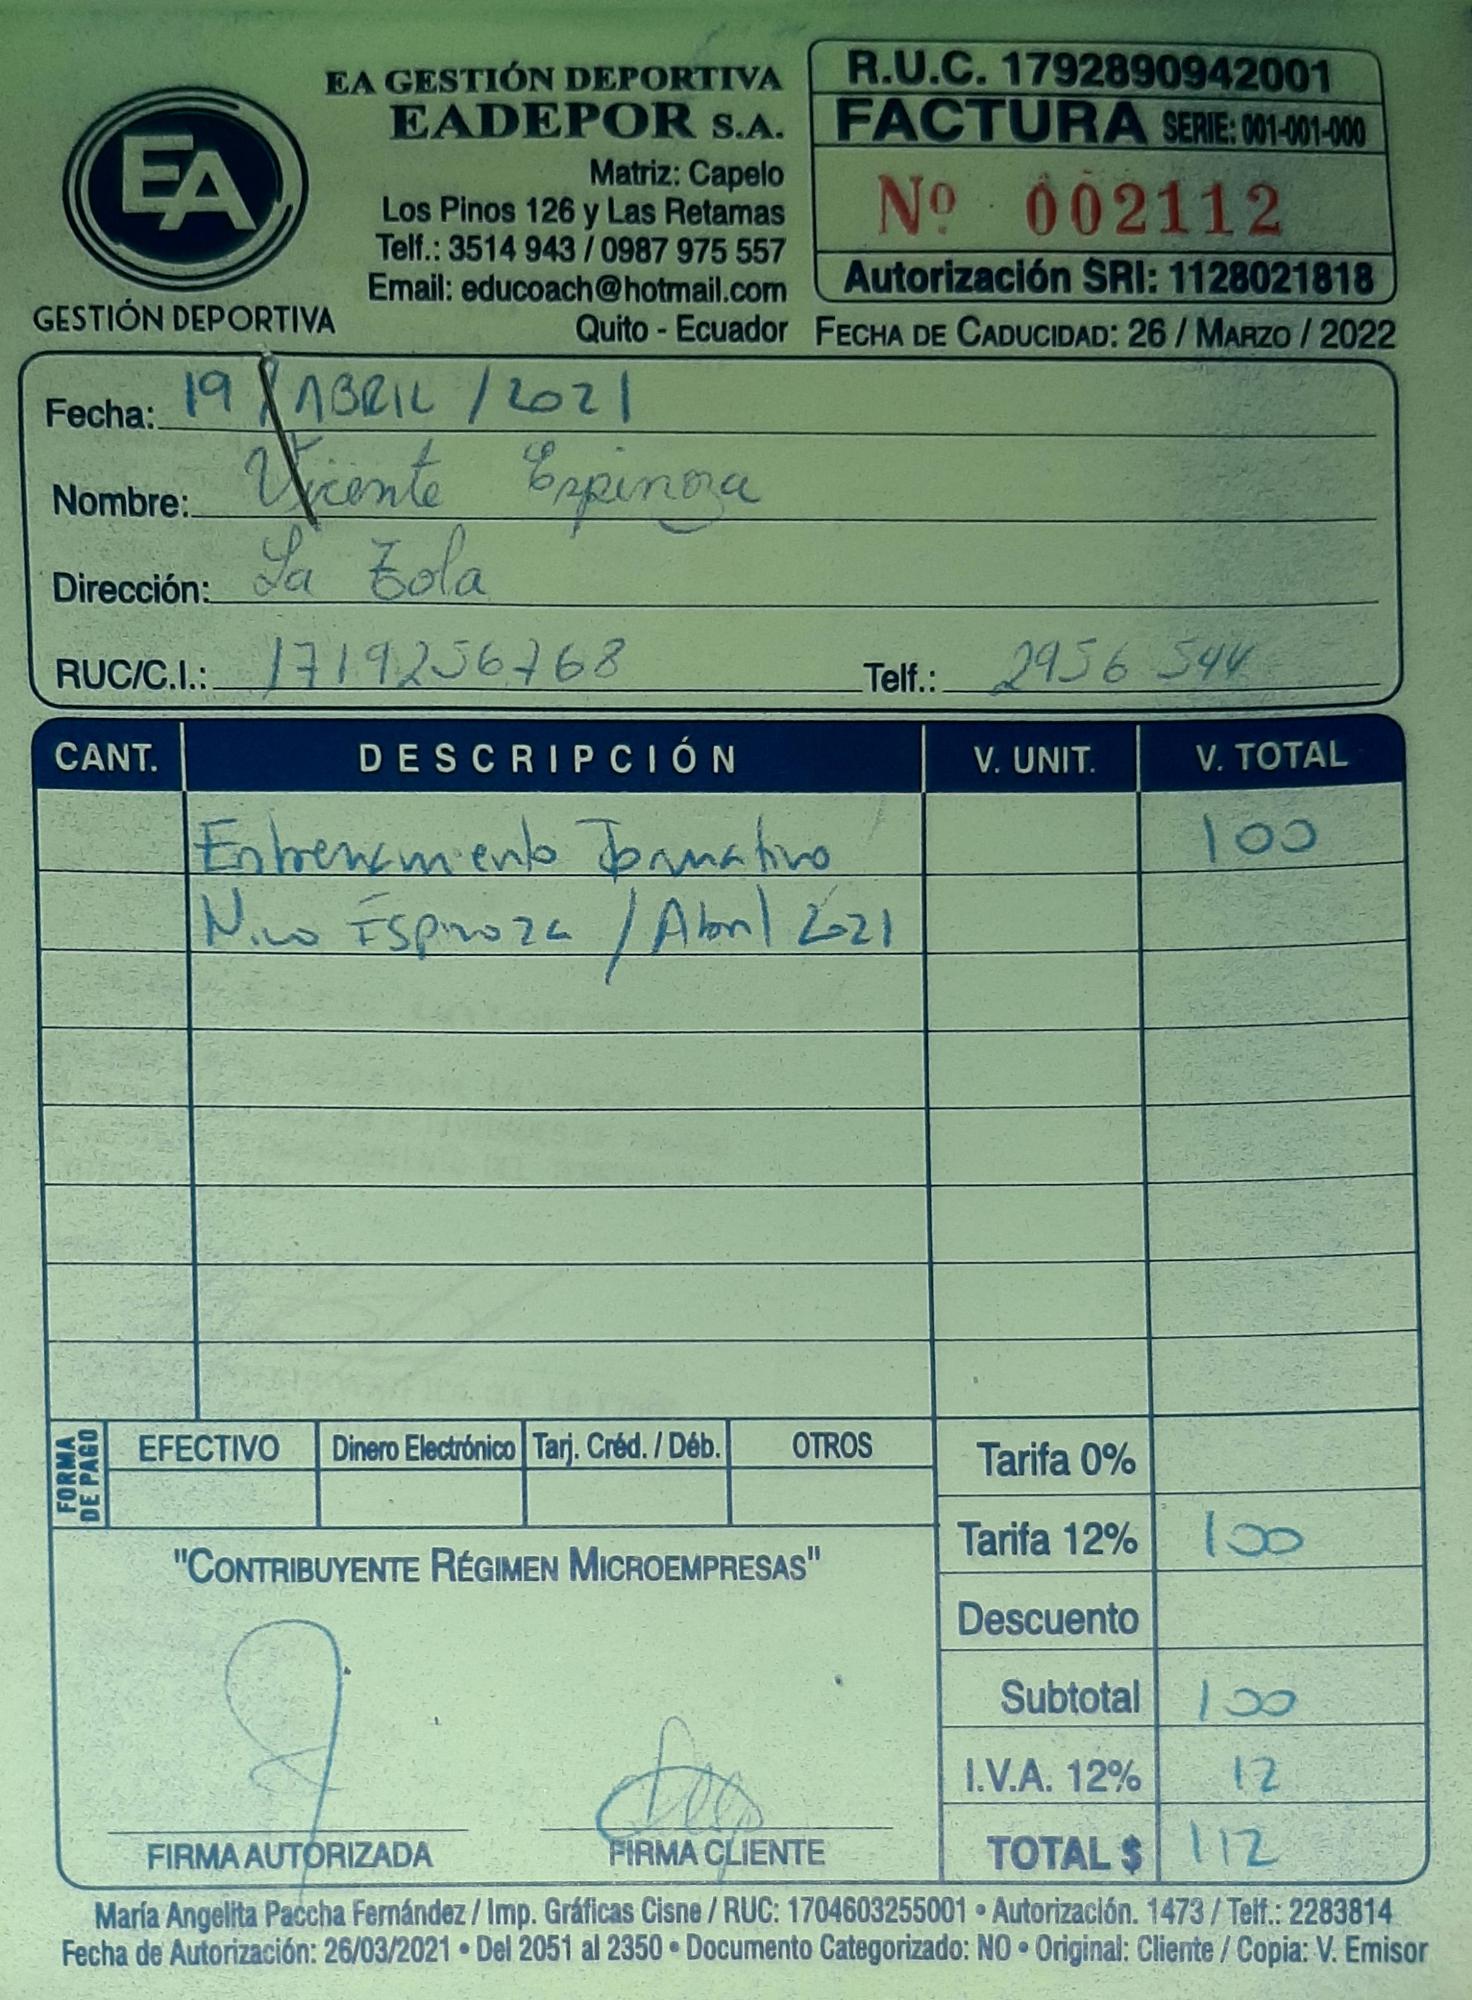 EA GESTIÓN DEPORTIVA
EADEPOR S.A.
Matriz: Capelo
Los Pinos 126 y Las Retamas
Telf.: 3514 943 / 0987 975 557
Email: educoach@hotmail.com
Quito - Ecuador
EA
GESTIÓN DEPORTIVA
R.U.C. 1792890942001
FACTURA SERIE: 001-001-000
Nº 002112
Autorización SRI: 1128021818
FECHA DE CADUCIDAD: 26 / MARZO / 2022
Fecha: 19 / ABRIL / 2021
Nombre: Vicente Espinoza
Dirección: La Tola
RUC/C.I.: 1719256768 Telf.: 2956 544
CANT. DESCRIPCIÓN V. UNIT. V. TOTAL
Entrenamiento Formativo 100
Nico Espinoza / Abril 2021
FORMA DE PAGO EFECTIVO Dinero Electrónico Tarj. Créd. / Déb. OTROS
Tarifa 0%
Tarifa 12% 100
Descuento
Subtotal 100
I.V.A. 12% 12
TOTAL $ 112
"CONTRIBUYENTE RÉGIMEN MICROEMPRESAS"
FIRMA AUTORIZADA FIRMA CLIENTE
María Angelita Paccha Fernández / Imp. Gráficas Cisne / RUC: 1704603255001 • Autorización. 1473 / Telf.: 2283814
Fecha de Autorización: 26/03/2021 • Del 2051 al 2350 • Documento Categorizado: NO • Original: Cliente / Copia: V. Emisor